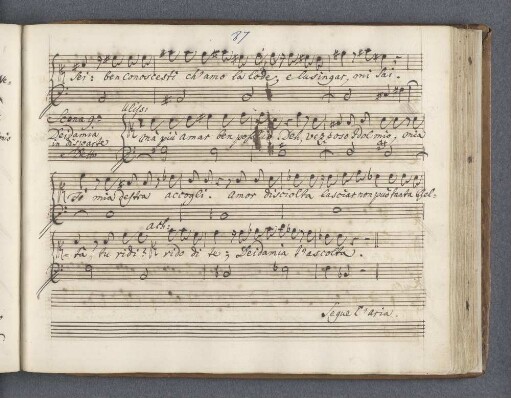 87
Sei: ben conoscesti ch'amo la lode, e lusingar mi sai.
Uliss:
Scena 9ª
Deidamia
in disparte
e Detti
una più amar ben Deh, vezzoso Idol mio, onea
se mia destra accogli. Amor disciolta lasciar non può tanta Bel-
Ach:
tà. tu ridi? rido di te; Deidamia t'ascolta.
Segue l'aria.